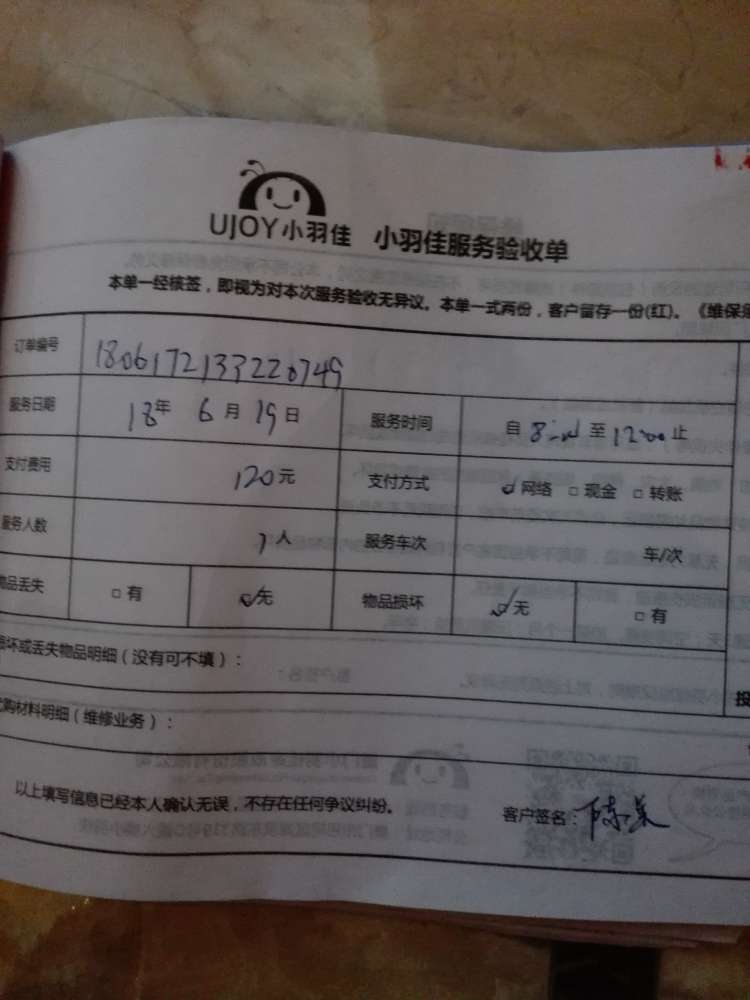 UJOY小羽佳 小羽佳服务验收单
本单一经核签，即视为对本次服务验收无异议。本单一式两份，客户留存一份(红)。《维保
订单编号 1806172133220749
服务日期 18年 6月 19日 服务时间 自 8:00 至 12:00 止
支付费用 120元 支付方式 ☑网络 □现金 □转账
服务人数 1人 服务车次 车/次
物品丢失 □有 ☑无 物品损坏 ☑无 □有
损坏或丢失物品明细（没有可不填）：
代购材料明细（维修业务）：
投
以上填写信息已经本人确认无误，不存在任何争议纠纷。 客户签名：陈